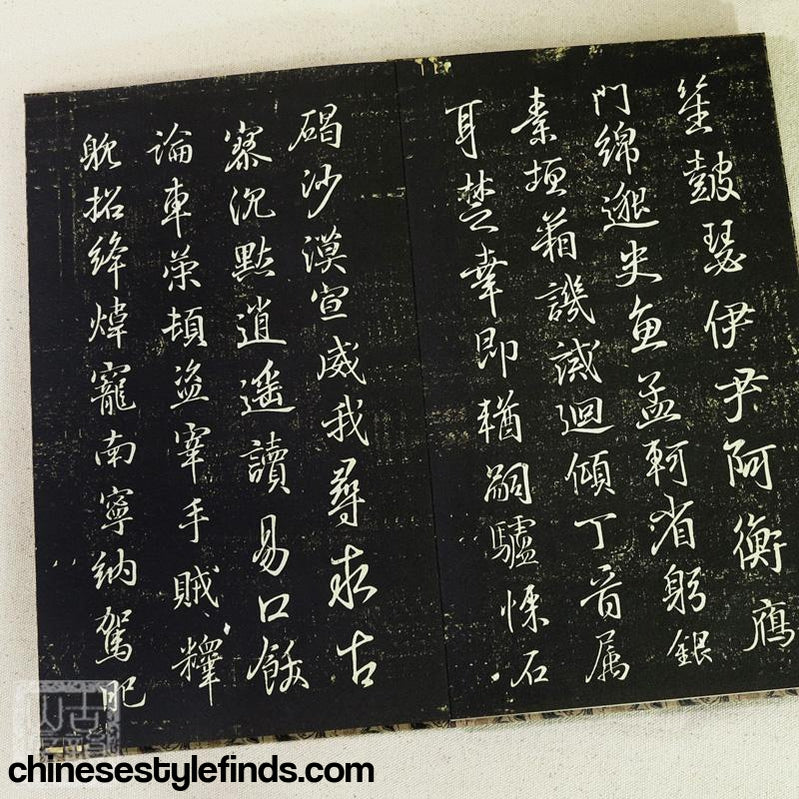 笙鼓瑟伊尹阿衡鴈
門綿邈史魚孟軻省躬銀
素垣箱譏誡迴傾丁音属
耳楚幸即輶嗣驢悚石
碣沙漠宣威我尋求古
寮沉默逍遥讀易口飫
論車荣頓盜宰手賊糧
躭招絳煒寵南寧納駕肥
chinesestylefinds.com